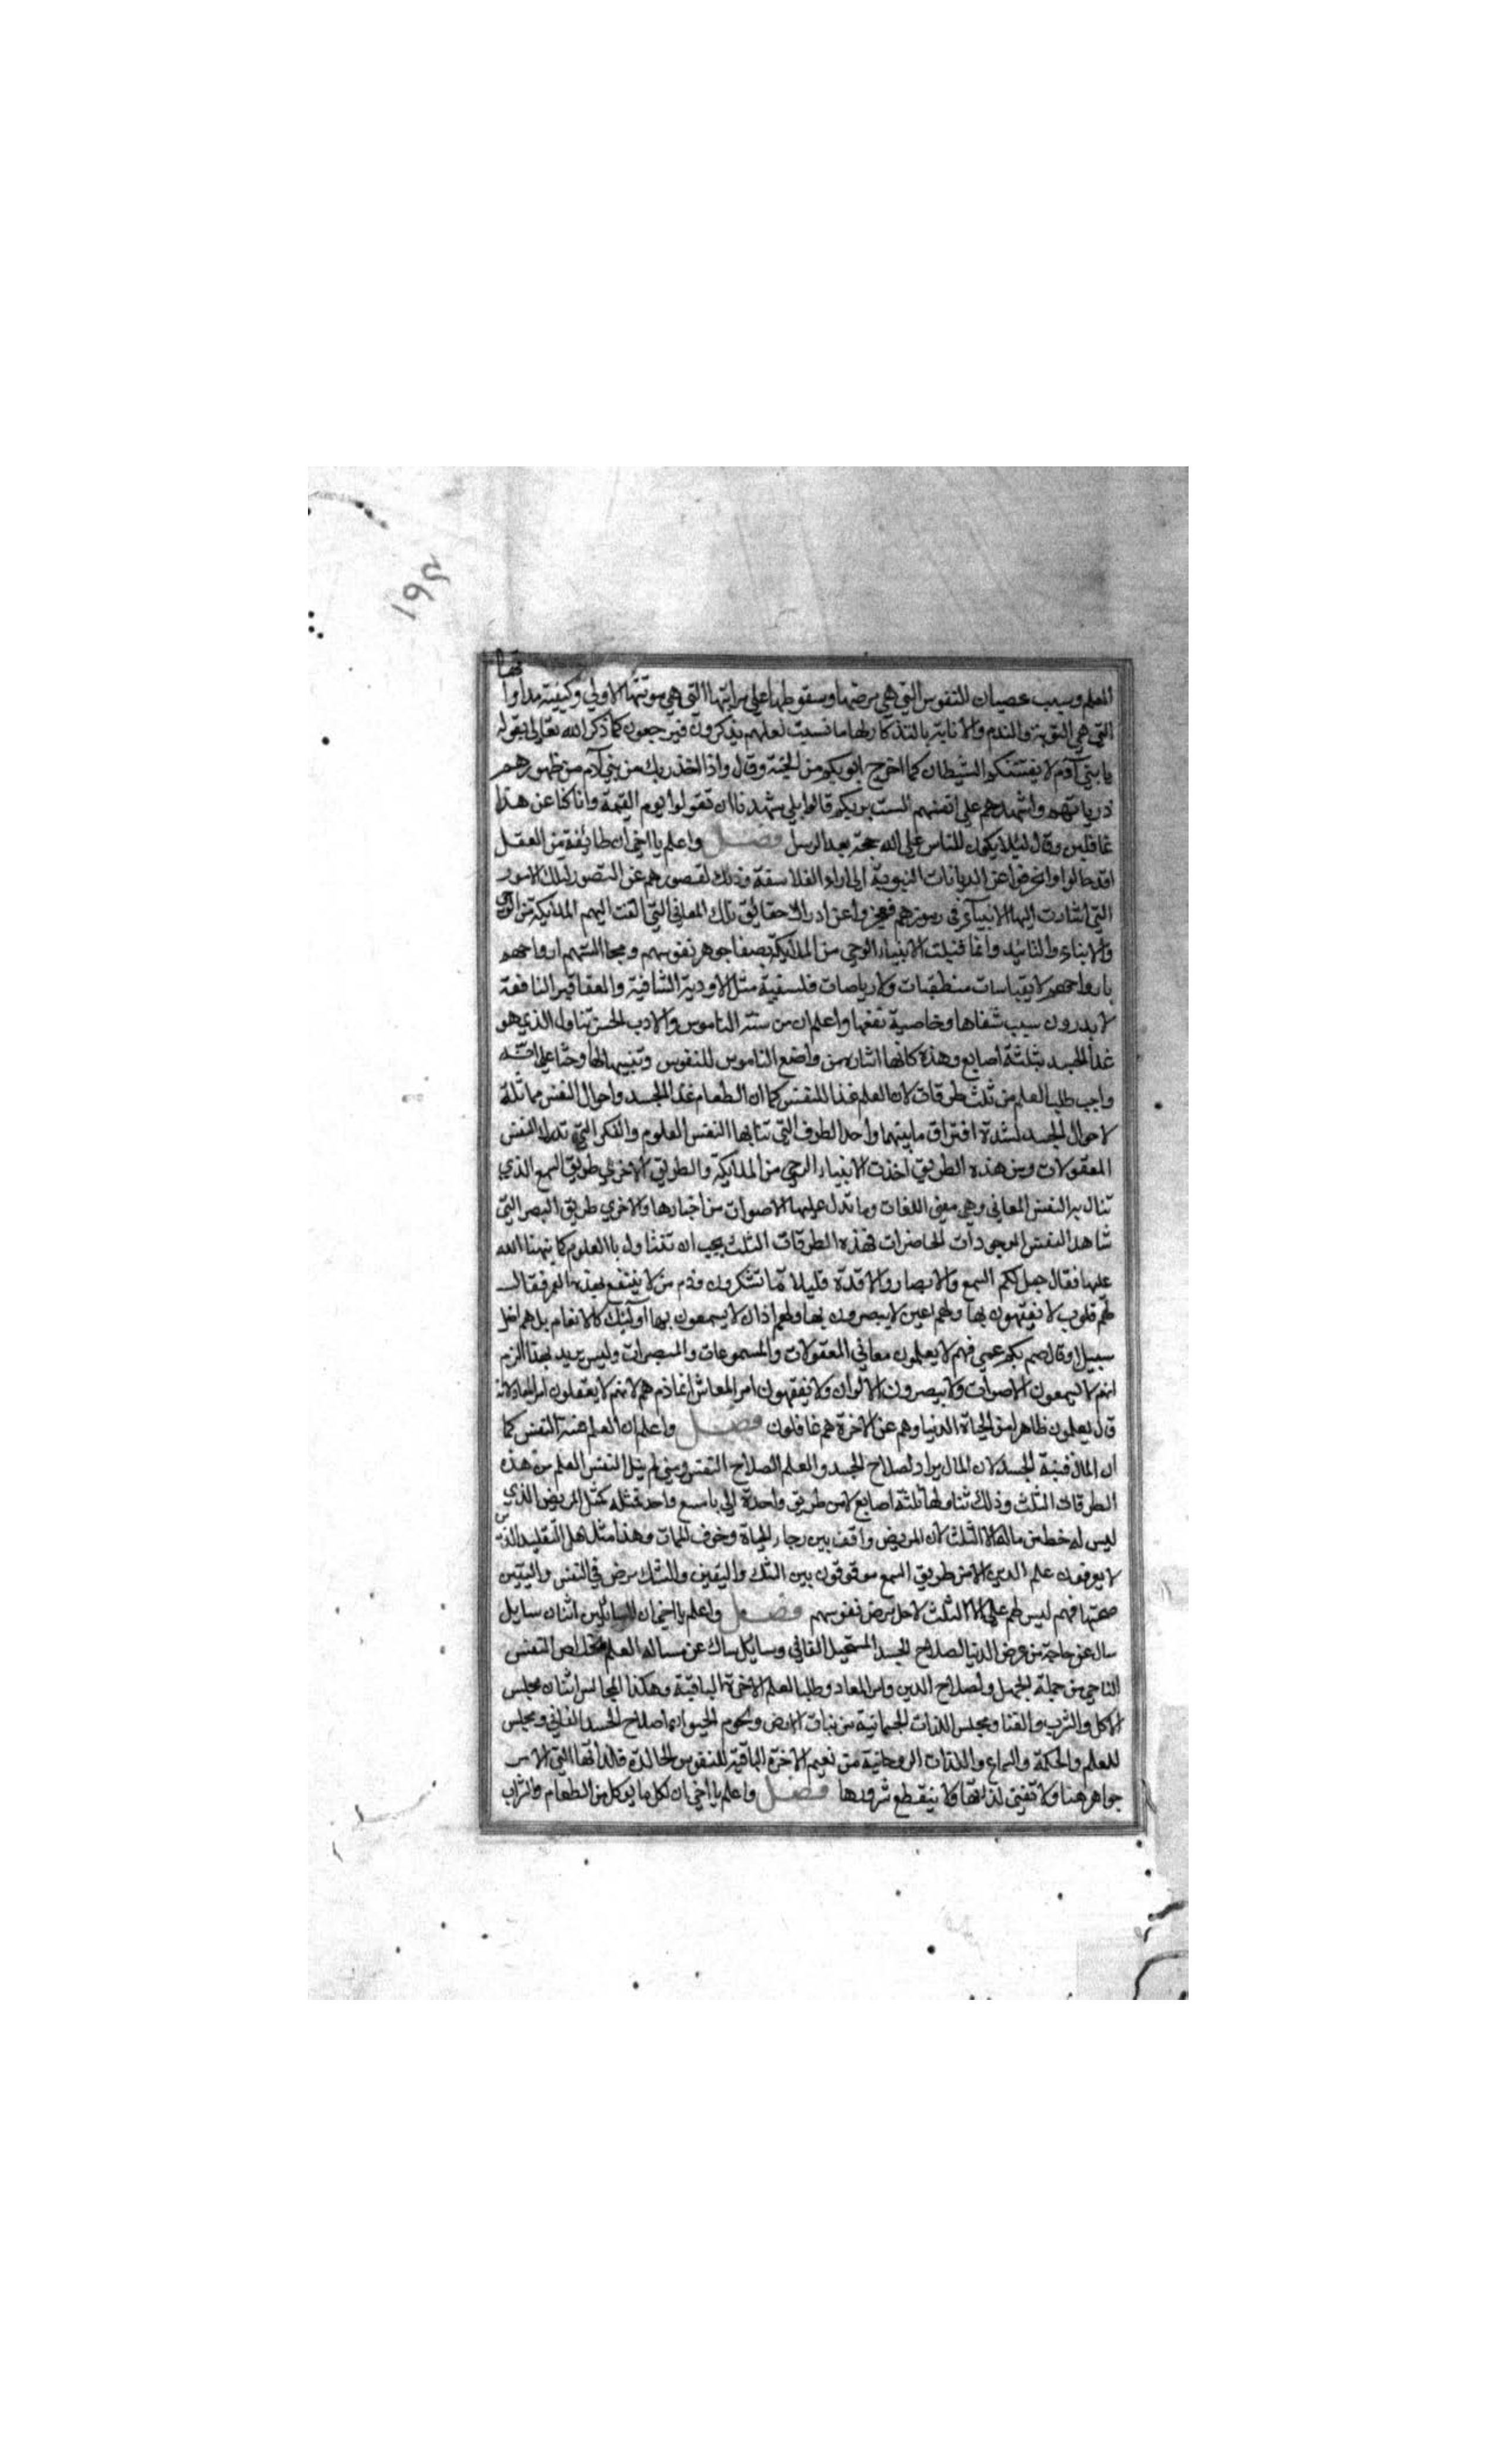 ١٩٤
العلم وسبب عصيان للنفوس التي هي مرضها وسقوطها على مراتبها التي هي موتتها الاولي وكيفية مداواتها
التي هي التوبة والندم والانابة بالتذكار لها ما نسيت لعلهم يذكرون فيرجعون كما ذكر الله تعالى بقوله
يا بني آدم لا يفتننكم الشيطان كما اخرج ابويكم من الجنة وقال واذ اخذ ربك من بني آدم من ظهورهم
ذرياتهم واشهدهم على انفسهم الست بربكم قالوا بلى شهدنا ان تقولوا يوم القيمة وانا كنا عن هذا
غافلين وقال لئلا يكون للناس على الله حجة بعد الرسل فصل واعلم يا اخي ان طائفة من العقل
اقد حالوا وانحرفوا عن الديانات النبوية الى اراء الفلاسفة وذلك لقصورهم عن التصور لتلك الامور
التي اشارت اليها الانبياء في رموزهم فعجزوا عن ادراك حقائق تلك المعاني التي القت اليهم الملايكة من الوحي
والانباء والتائيد وانما قبلت الانبياء الوحي من الملايكة بصفا جوهر نفوسهم ارواحهم
بارواحهم لا بقياسات منطقيات ولا رياضات فلسفية مثل الاودية الشافية والعقاقير النافعة
لا يدرون سبب شفاها وخاصية نفعها واعلم ان من سنة الناموس والادب الحسن تناول الذي هو
غذا الجسد بثلثة اصابع وهذه كانها اشارة من واضع الناموس للنفوس وتنبيها لها وحثا على انه
واجب طلب العلم من ثلث طرقات لان العلم غذا للنفس كما ان الطعام غذا الجسد واحوال النفس مماثلة
لاحوال الجسد لشدة افتراق ما بينهما واحد الطرف التي تنالها النفس العلوم والفكر التي تدرك النفس
المعقولات ومن هذه الطريق اخذت الانبياء الوحي من الملايكة والطريق الاخري طريق السمع الذي
تنال به النفس المعاني وهي معنى اللغات وما تدل عليها الاصوات من اخبارها والاخري طريق البصر التي
تشاهد النفس الموجودات الحاضرات فهذه الطرقات الثلث يجب ان تتناول با العلوم كما نبهنا الله
عليها فقال جعل لكم السمع والابصار والافدة قليلا ما تشكرون وذم من لا ينتفع بهذه فقال
لهم قلوب لا يفقهون بها ولهم اعين لا يبصرون بها ولهم اذان لا يسمعون بها اولئك كالانعام بل هم اضل
سبيلا وقال صم بكم عمي فهم لا يعلمون معاني المعقولات والمسموعات والمبصرات وليس يريد بهذا الزم
انهم لا يسمعون الاصوات ولا يبصرون الالوان ولا يفقهون امر المعاش انما ذمهم لانهم لا يعقلون امر المعاد لانه
قال يعلمون ظاهرا من الحياة الدنيا وهم عن الاخرة هم غافلون فصل واعلم ان العلم قنية النفس كما
ان المال قنية الجسد لان المال يراد لصلاح الجسد والعلم لصلاح النفس ومتى لم ينل النفس العلم من هذه
الطرقات الثلث وذلك تناولها ثلثة اصابع لا من طريق واحدة اي باصبع واحد فمثله كمثل المريض الذي
ليس له حظ من ماله الا الثلث لان المريض واقف بين رجا الحياة وخوف الممات وهذا مثل اهل التقليد الذين
لا يعرفون علم الدين الا من طريق السمع موقوفون بين الشك واليقين والشك مرض في النفس واليقين
صحتها فهم ليس لهم علم الا الثلث لاجل مرض نفوسهم فصل واعلم يا اخي ان السائلين اثنان سايل
سال عن حاجة من عرض الدنيا لصلاح الجسد المستحيل الفاني وسايل سال عن مساله العلم لخلاص النفس
الناجي من جملة الجهل ولصلاح الدين وامر المعاد وطلب العلم الاخرة الباقية وهكذا المجالس اثنان مجلس
الاكل والشرب والغنا ومجلس اللذات الجسمانية من نبات الارض ولحوم الحيوان لصلاح الجسد الفاني ومجلس
للعلم والحكمة والسماع واللذات الروحانية من نعيم الاخرة الباقية للنفوس الخالدة
ولا تفنى لذاتها ولا ينقطع سرورها فصل واعلم يا اخي ان لكل ما يوكل من الطعام والشراب